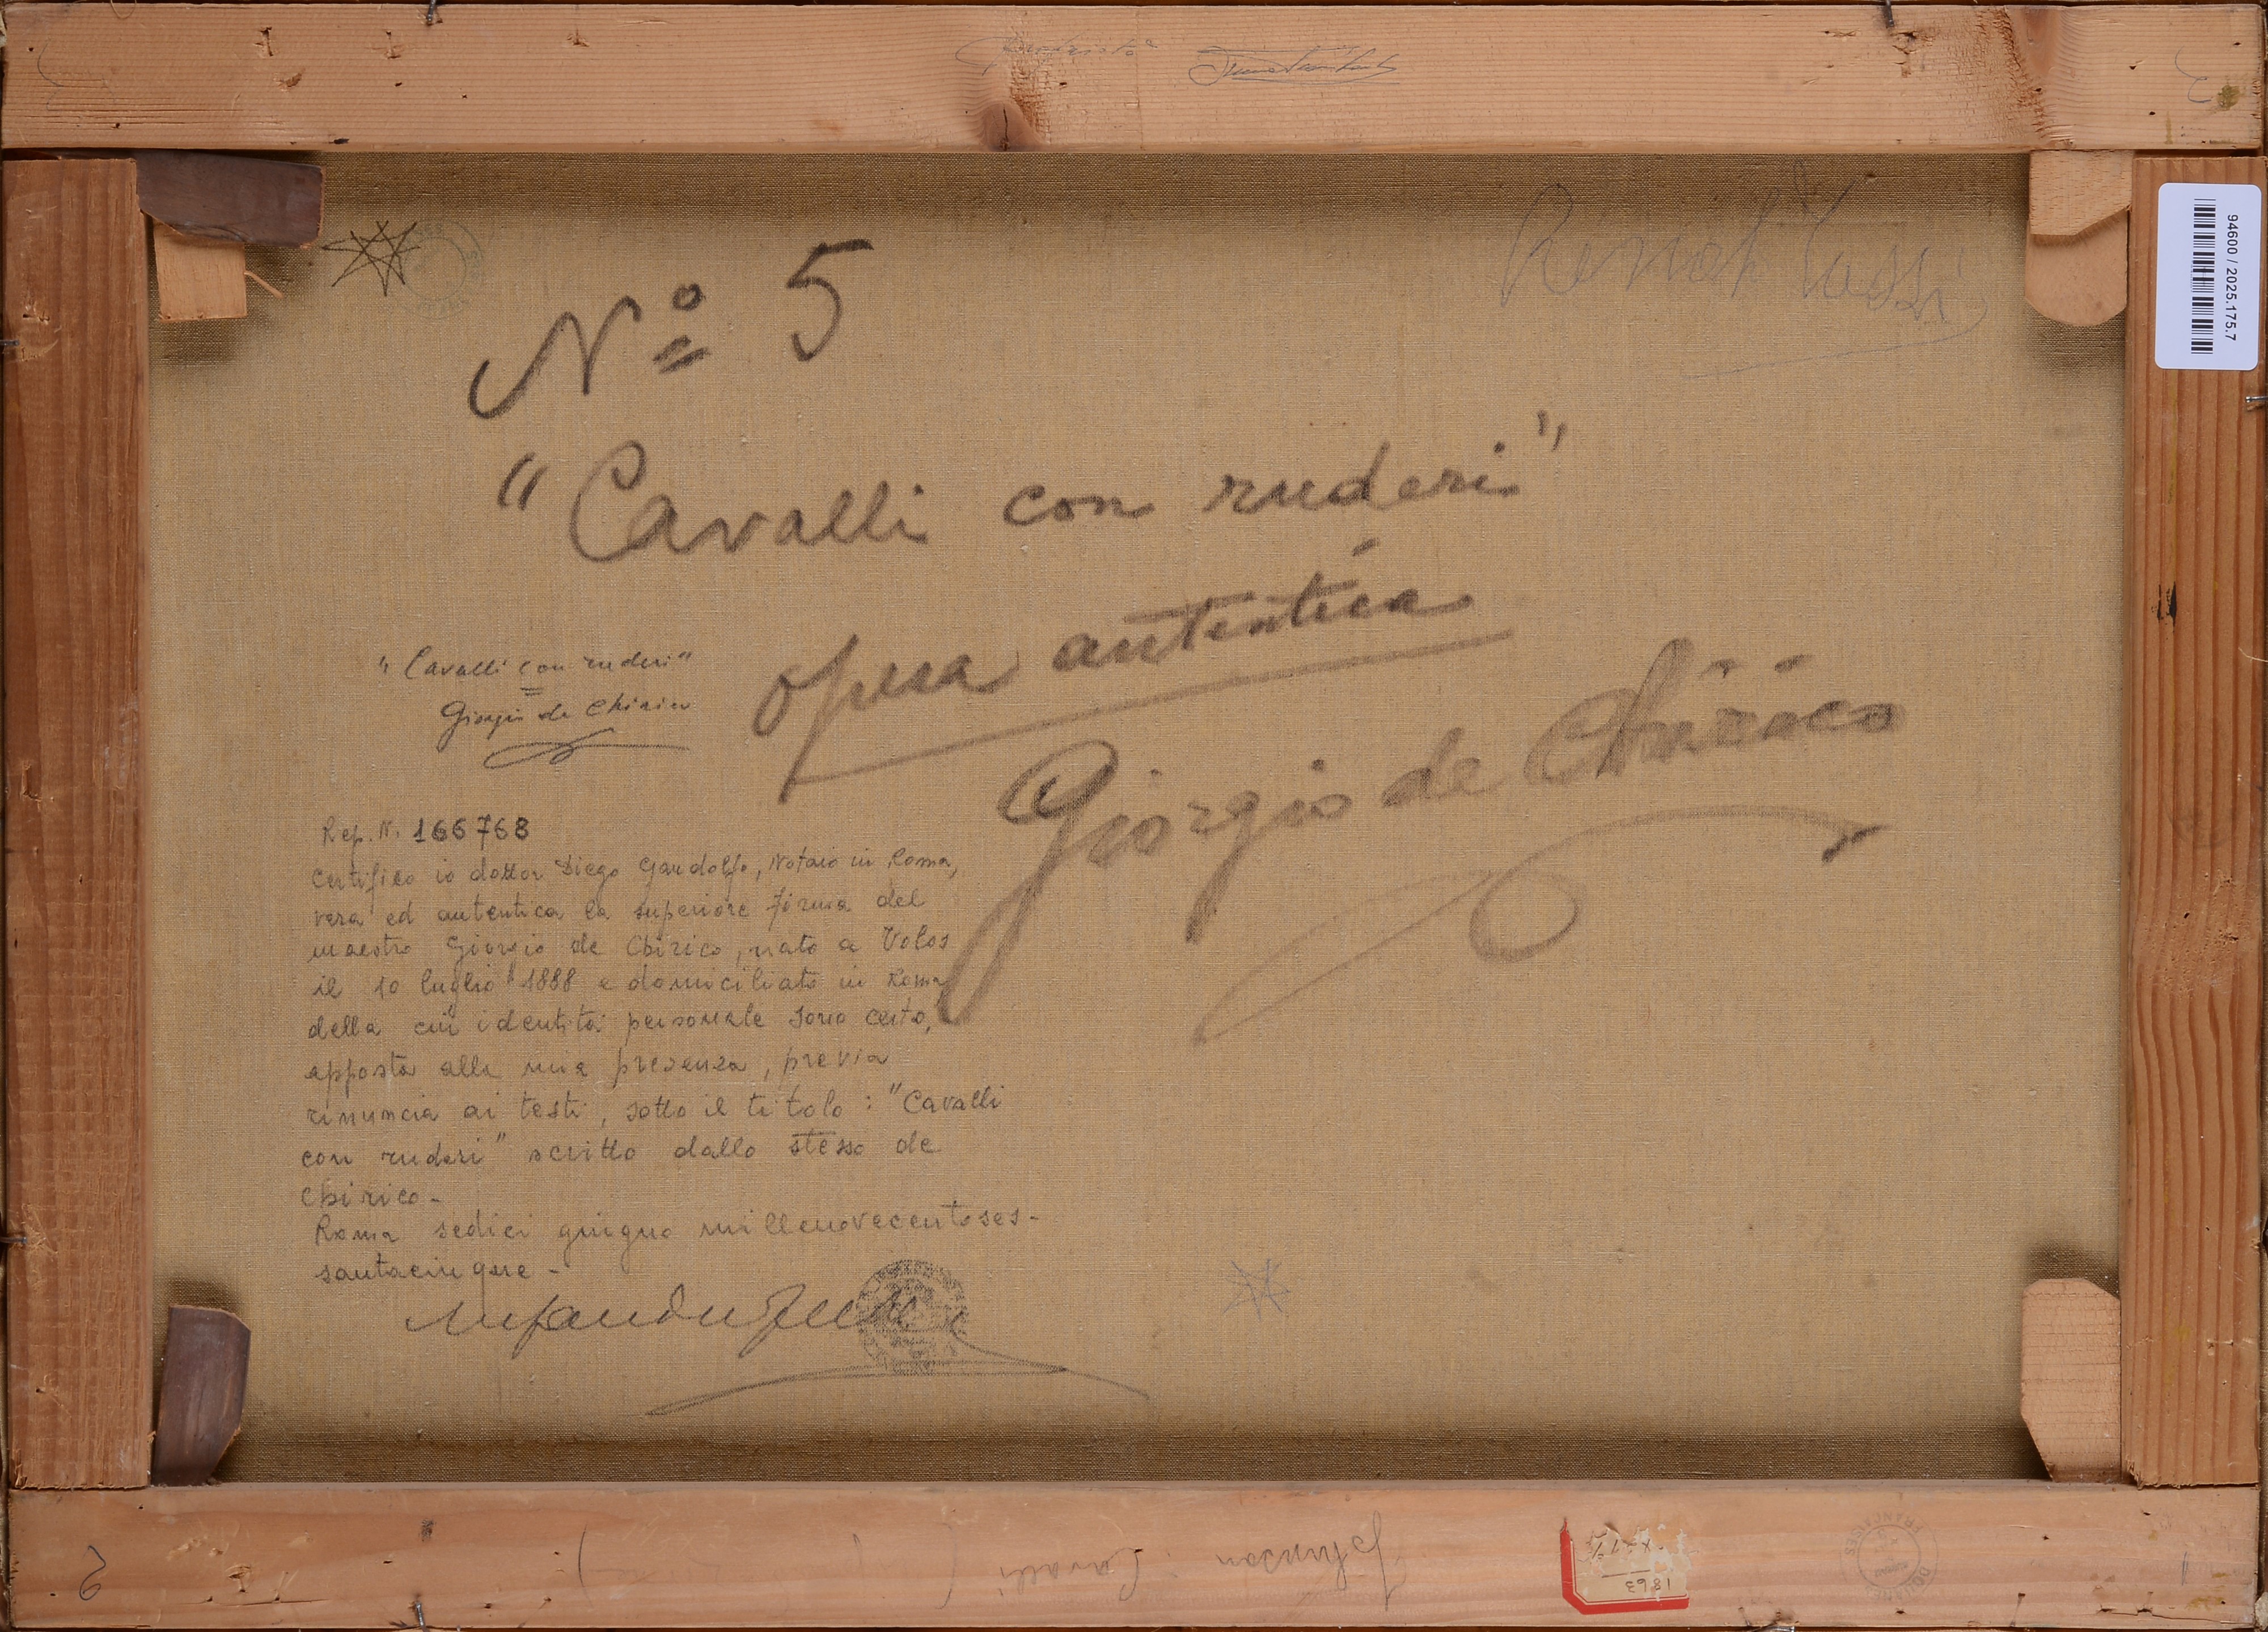 94600 / 2025.175.7
Nº 5
"Cavalli con ruderi"
opera autentica
Giorgio de Chirico
"Cavalli con ruderi"
Giorgio de Chirico
Rep. N. 166768
Certifico io dottor Diego Gandolfo, Notaio in Roma,
vera ed autentica la superiore firma del
maestro Giorgio de Chirico, nato a Volos
il 10 luglio 1888 e domiciliato in Roma
della cui identità personale sono certo,
apposta alla mia presenza, previa
rinuncia ai testi, sotto il titolo: "Cavalli
con ruderi" scritto dallo stesso de
Chirico -
Roma sedici giugno millenovecentoses-
santacinque -
Johnson : Cavalli
1863
2